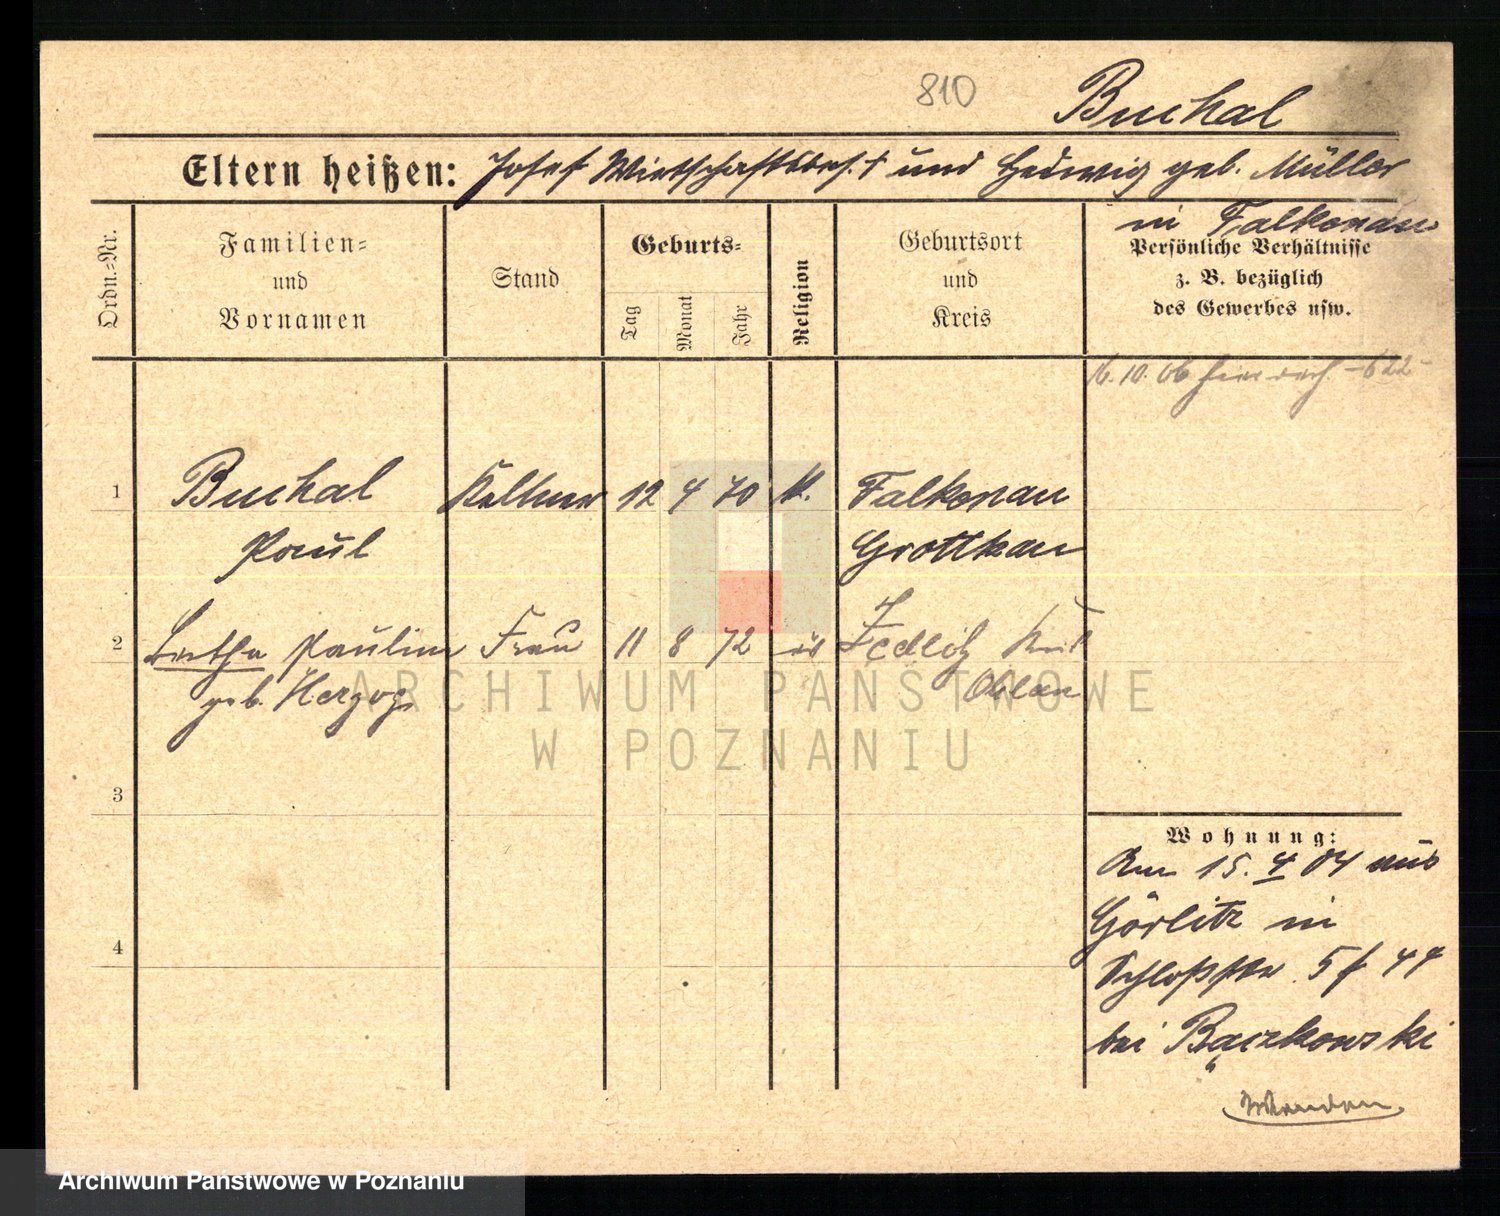 810
Buchal
Eltern heißen: Josef Wirtschaftsbes. † und Hedwig geb. Müller
in Falkenau
Ordn.-Nr.
Familien- und Vornamen
Stand
Geburts-
Tag
Monat
Jahr
Religion
Geburtsort und Kreis
Persönliche Verhältnisse
z. B. bezüglich
des Gewerbes usw.
16. 10. 06
1 Buchal Kellner 12 4 70 k. Falkenau
Paul Grottkau
2 Pauline Frau 11 8 72 Zedlitz Kreis
geb. Herzog Ohlau
3
4
Wohnung:
Am 15. 4 04 aus
Görlitz in
Schloßstr. 5
bei Bączkowski
ARCHIWUM PAŃSTWOWE
W POZNANIU
Archiwum Państwowe w Poznaniu